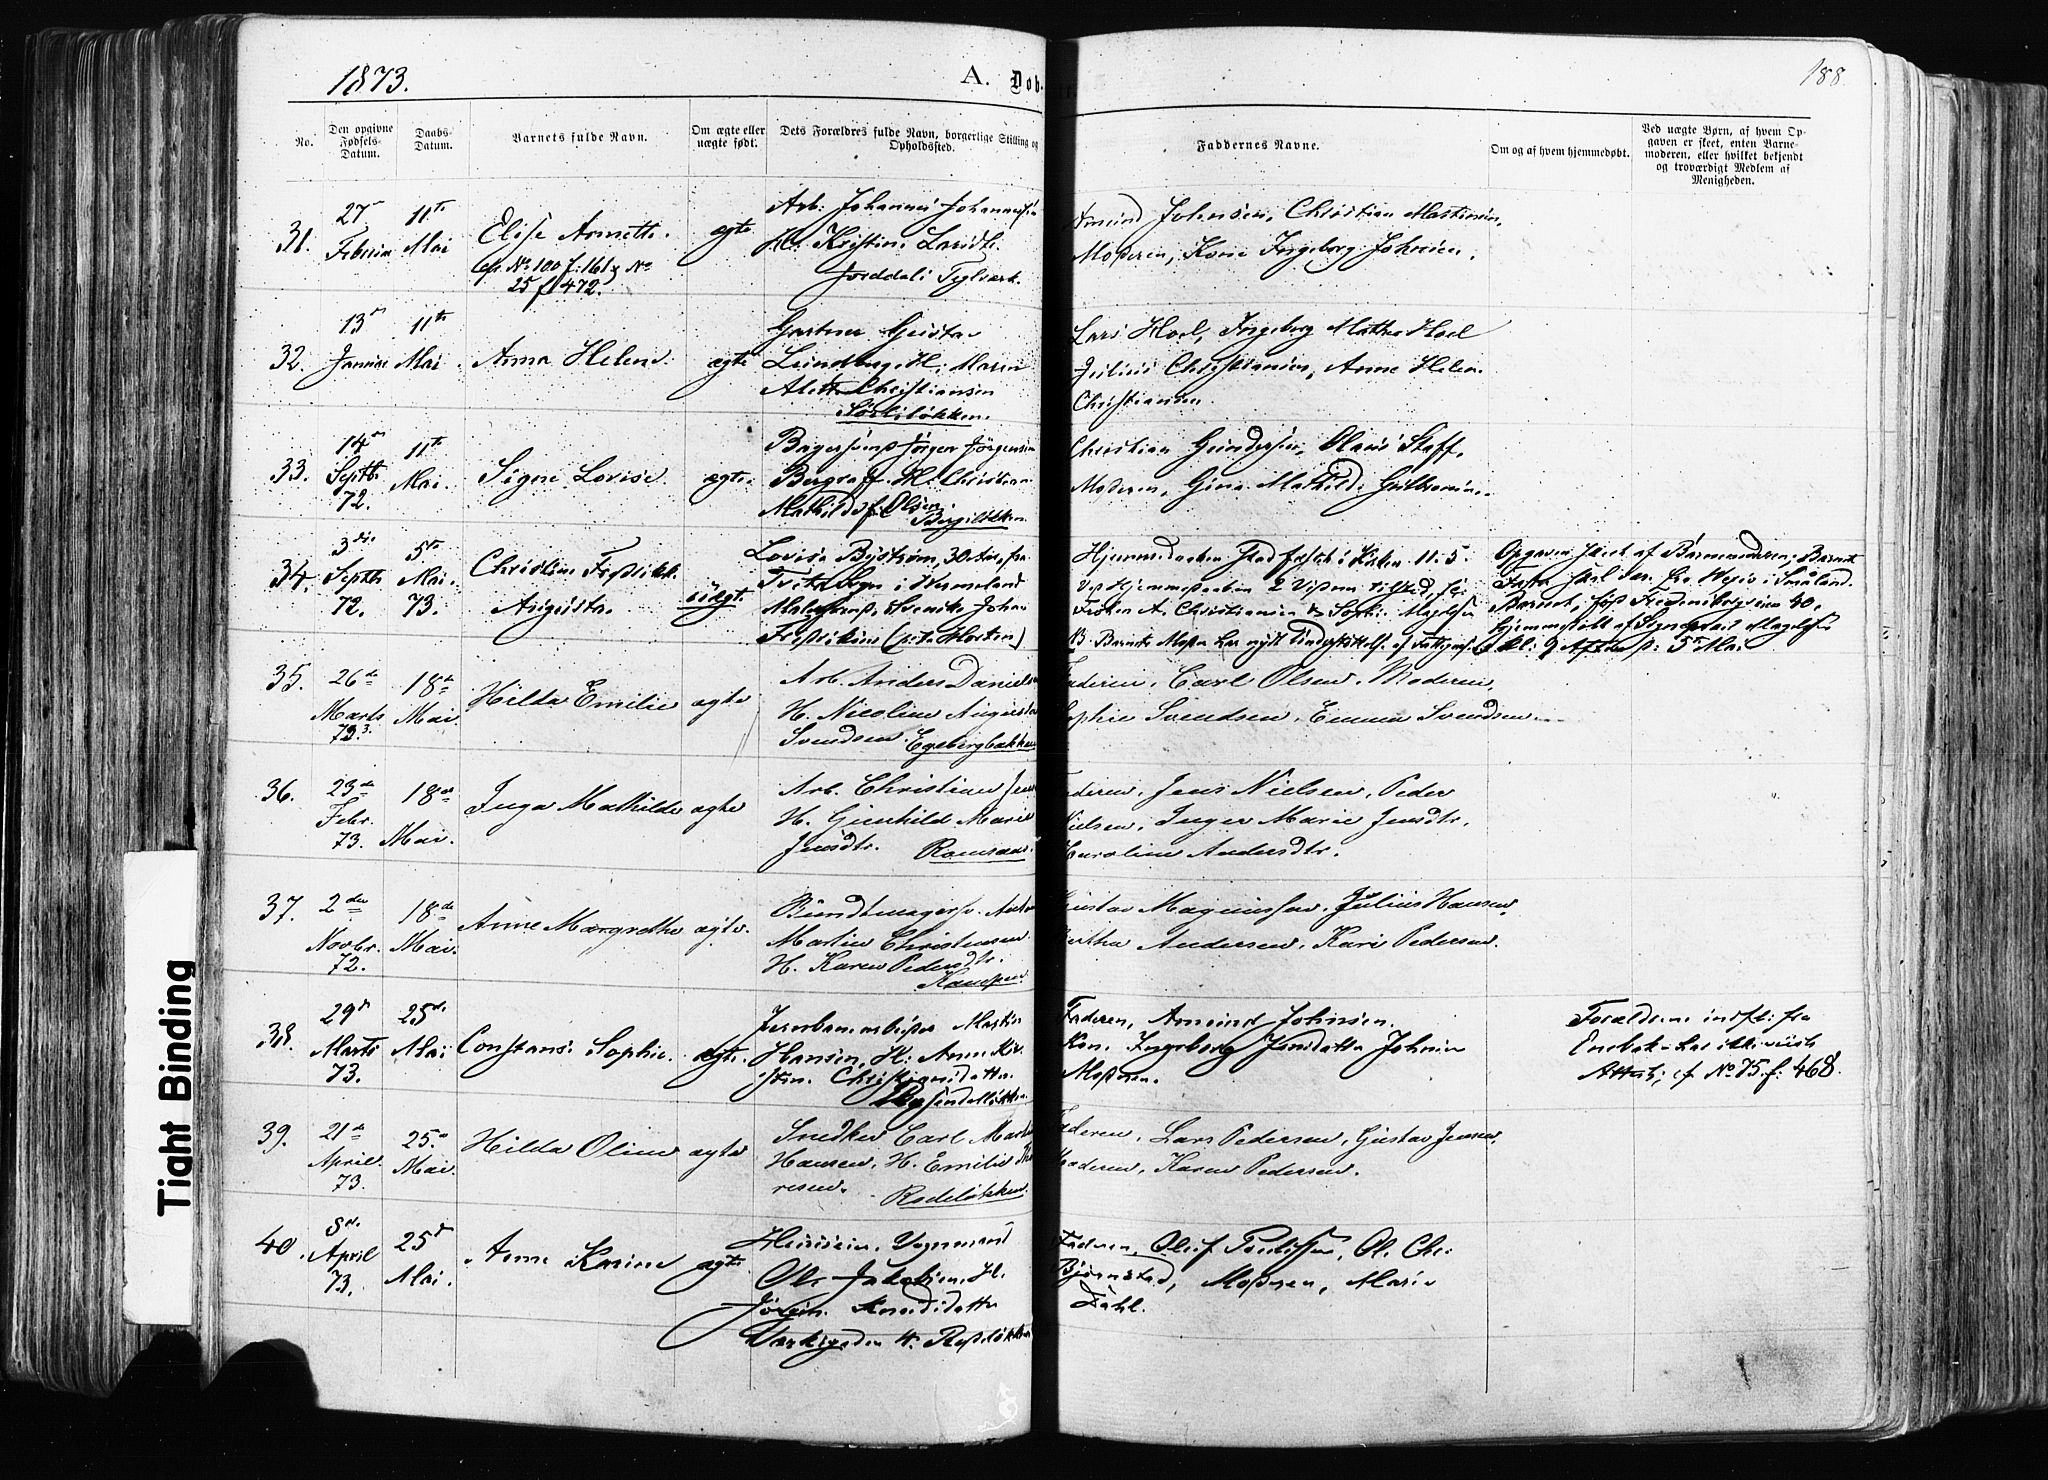 1873.
A. Døb-
188
No.
Den opgivne Fødsels-Datum.
Daabs-Datum.
Barnets fulde Navn.
Om ægte eller uægte født.
Dets Forældres fulde Navn, borgerlige Stilling og Opholdssted.
Faddernes Navne.
Om og af hvem hjemmedøbt.
Ved uægte Børn, af hvem Op-
gaven er skeet, enten Barne-
moderen, eller hvilket bekjendt
og troværdigt Medlem af
Menigheden.
31.
27
11te
Mai
Elise Annette.
No 100 f: 161 No
25 f 472.
ægte
Arb: Johannes Johannesen
H. Kristine
Teglværk.
Amund Johnsen, Christian Martinsen,
Moderen, Kone Ingeborg Johnsen.
32.
13
Januar
11te
Mai
Anna Helene
ægte
Gartner Gustav
Lundberg H: Maren
Alette Christiansen
Sörliløkken.
Lars Hoel, Ingeborg Mathea Hoel
Julius Christiansen, Anne Helen
Christiansen.
33.
14
Septb.
72.
11te
Mai.
Signe Lovise
ægte.
Jörgen Jörgensen
H. Christian
Mathilde Olsen
Christian Gundersen, Olaus Staff,
Moderen, Gina Mathilde
34.
3die
Septb.
72.
5te
Mai.
73.
Christine Fredrikke
Augusta.
uægte
Lovise Byström, 30 Aar, fra
Sogn i Wermeland
Svenske Johan
Hjemmedaaben Stadfæstet i Kirken 11.5
Ved Hjemmedaaben 2 Vidner tilsted,
A. Christiansen
B. Barnets Moder har
Opgaven skeet af Barnemoderen, Barnets
i Småland.
Barnet, født Fredensborgveien 40,
Hjemmedøbt af
kl: 9 5 Mai
35.
26de
Marts
73.
18de
Mai.
Hilda Emilie
ægte
Arb. Anders Daniels
H. Nicoline Augusta
Svendsen. Egebergbakken
Faderen, Carl Olsen. Moderen,
Sophie Svendsen, Emma Svendsen
36.
23de
Febr.
73.
18de
Mai.
Inga Mathilde
ægte
Arb. Christian Jens
H. Gunhild Marie
Jensdtr.
Faderen, Jens Nielsen, Peder
Nielsen, Inger Marie Jensdtr,
Karoline Andersdtr.
37.
2den
Novbr.
72.
18de
Mai.
Anne Margrethe
ægte.
Bundtmagersv. Anton
Martin Christensen
H. Karen Pedersdtr.
Kampen.
Gustav Magnussen. Julius Hansen,
Bertha Andersen, Kari Pedersen.
38.
29
Marts
73.
25de
Mai
Constanse Sophie.
ægte.
Jernbanearbeider Martin
Hansen, H. Anne Kir
stine Christiansdatter
Faderen, Amund Johnsen,
Kone Ingeborg Johnsen
Moderen.
Forældrene indfl: fra
Enebak - har ikke viist
Attest; cf No 75 f: 468.
39.
21de
April
73.
25
Mai
Hilda Oline
ægte
Snedker Carl Martin
Hansen. H. Emilie The
resen. Rodeløkken.
Faderen, Lars Pedersen, Gustav Jensen,
Moderen, Karen Pedersen.
40.
8de
April
73.
25de
Mai.
Anne Karine
ægte
Huuseier, Vognmand
Ole Jakobsen, H.
Knudsdatter
4. Rodeløkken
Faderen, Oluf Paulssen, Ole Chr.
Björnstad, Moderen, Marie
Dahl.
Tight Binding